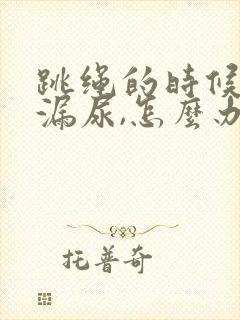 跳绳的時候
漏尿,怎麼办
托普奇